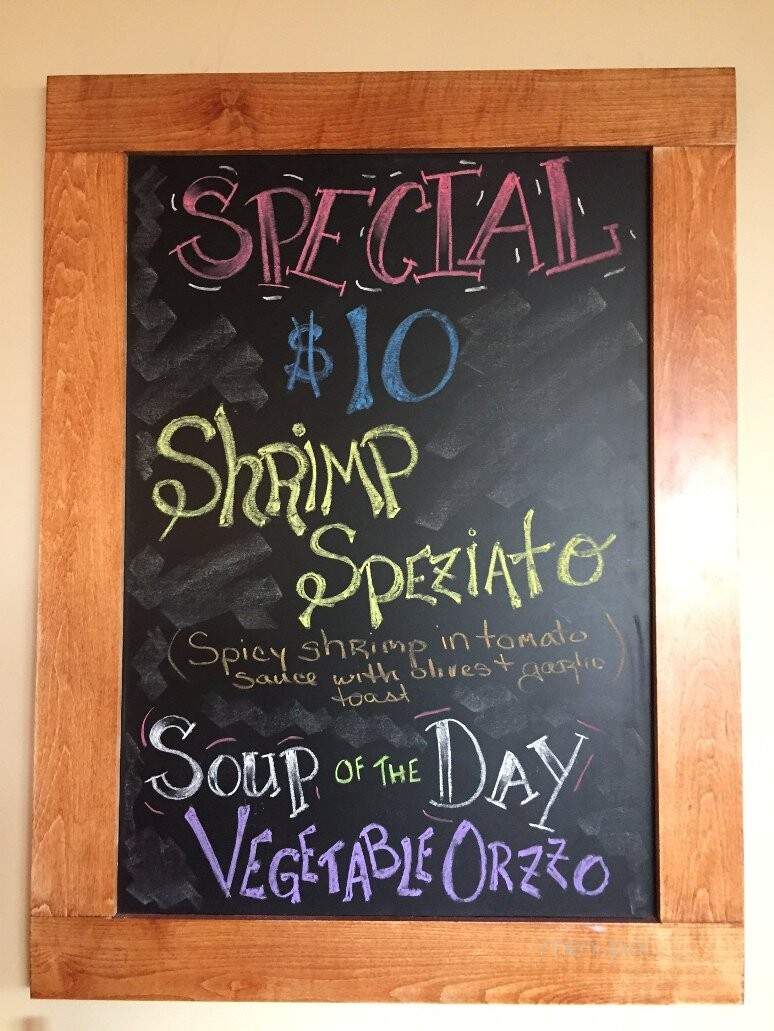 SPECIAL
$10
ShRiMP
SPEZIAtO
(Spicy shrimp in tomato
sauce with olives + garlic)
toast
SOUP OF THE DAY
VEGETABLE ORZZO